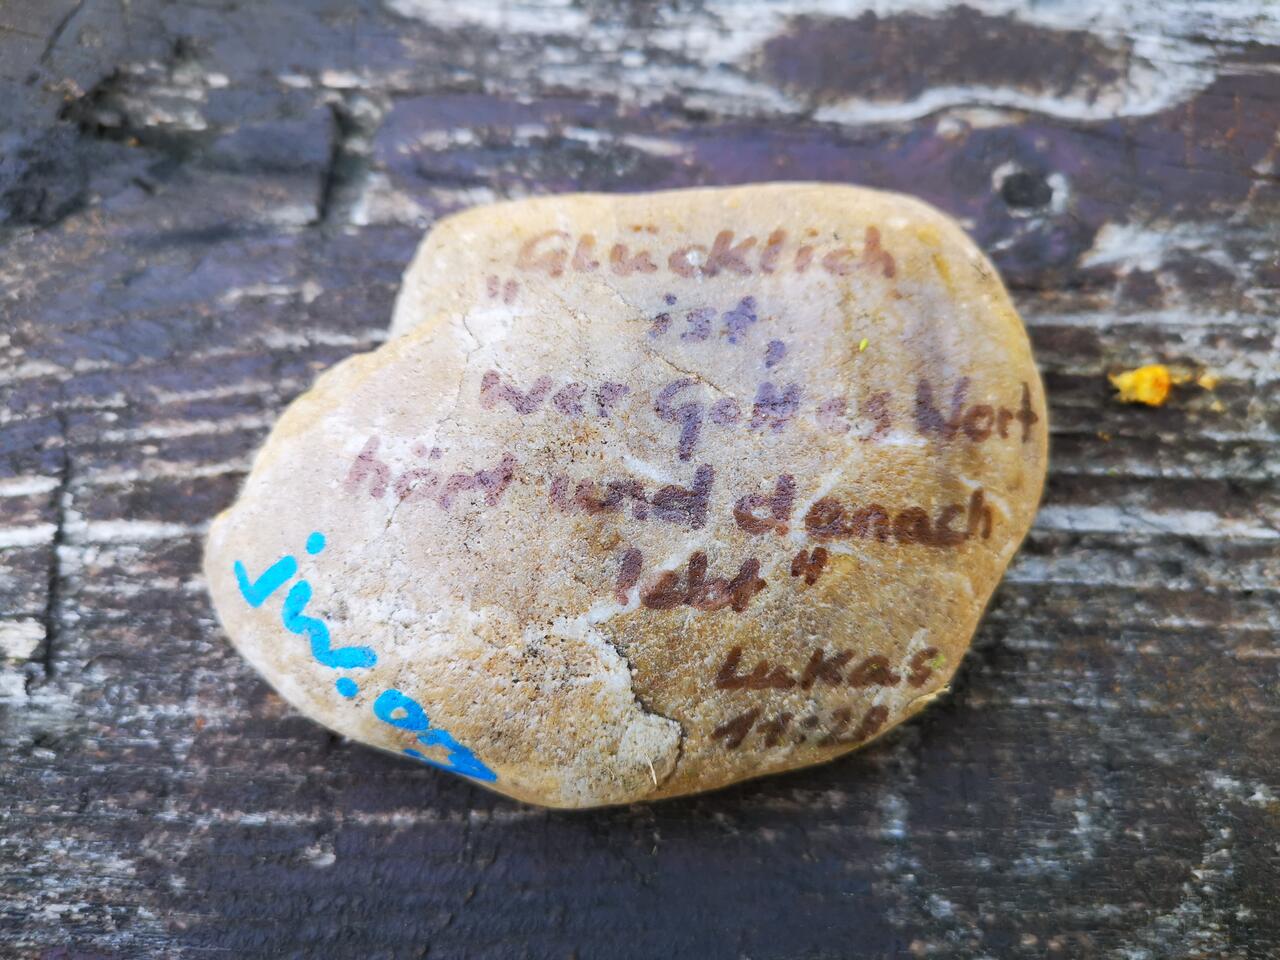 "Glücklich
ist,
wer Gottes Wort
hört und danach
lebt"
Lukas
11:28
jw.org